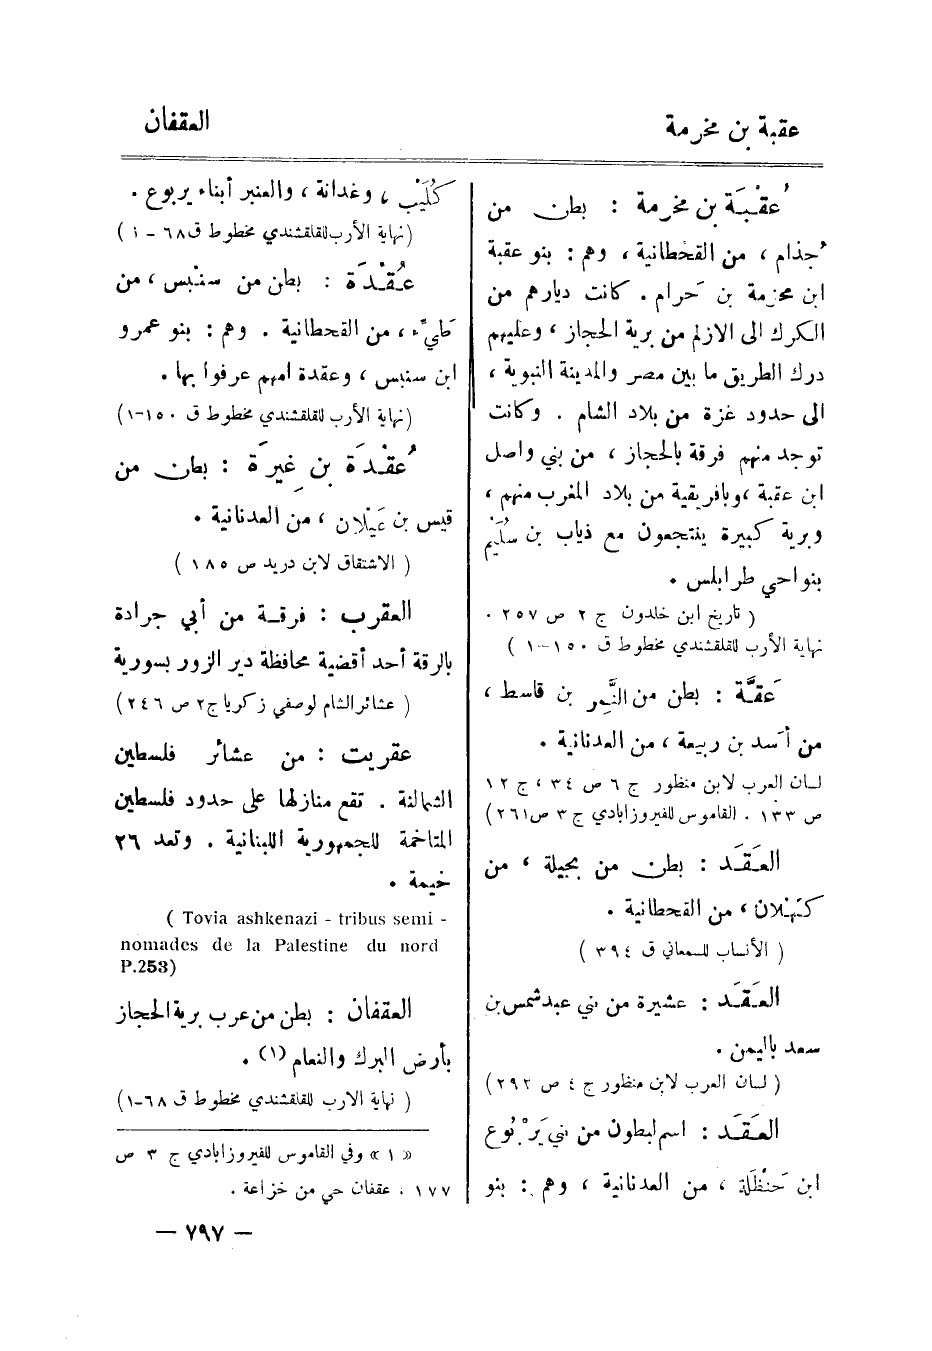 عقبة بن مخرمة
العقفان
عُقْبَة بن مخرمة : بطن من
جُذام ، من القحطانية ، وهم : بنو عقبة
ابن مخرمة بن حَرام . كانت ديارهم من
الكرك الى الازلم من برية الحجاز ، وعليهم
درك الطريق ما بين مصر والمدينة النبوية ،
الى حدود غزة من بلاد الشام . وكانت
توجد منهم فرقة بالحجاز ، من بني واصل
ابن عقبة ،وبافريقية من بلاد المغرب منهم ،
وبرية كبيرة ينتجعون مع ذياب بن سُلَيْم
بنواحي طرابلس .
( تاريخ ابن خلدون ج ٢ ص ٢٥٧ .
نهاية الأرب للقلقشندي مخطوط ق ١٥٠-١ )
عَقَّة : بطن من النَّمِر بن قاسط ،
من أسد بن ربيعة ، من العدنانية .
لسان العرب لابن منظور ج ٦ ص ٣٤ ، ج ١٢
ص ١٣٣ . القاموس للفيروزابادي ج ٣ ص٢٦١)
العَقَد : بطن من بجيلة ، من
كَهْلان ، من القحطانية .
( الأنساب للسمعاني ق ٣٩٤ )
العَقَد : عشيرة من بني عبدشمس بن
سعد باليمن .
( لسان العرب لابن منظور ج ٤ ص ٢٩٢)
العَقَد : اسم لبطون من بني يَرْبُوع
ابن حَنْظَلة ، من العدنانية ، وهم : بنو
كُلَيْب ، وغدانة ، والعنبر أبناء يربوع .
(نهاية الأرب للقلقشندي مخطوط ق٦٨ - ١ )
عُقْدَة : بطن من سنْبس ، من
طَيِّء ، من القحطانية . وهم : بنو عمرو
ابن سنبس ، وعقدة امهم عرفوا بها .
(نهاية الأرب للقلقشندي مخطوط ق ١٥٠-١)
عُقْدَة بن غِيَرَة : بطن من
قيس بن عَيْلان ، من العدنانية .
( الاشتقاق لابن دريد ص ١٨٥ )
العقرب : فرقة من أبي جرادة
بالرقة أحد أقضية محافظة دير الزور بسورية
( عشائر الشام لوصفي زكريا ج٢ ص ٢٤٦)
عقريت : من عشائر فلسطين
الشمالية . تقع منازلها على حدود فلسطين
المتاخمة للجمهورية اللبنانية . وتعد ٢٦
خيمة .
( Tovia ashkenazi - tribus semi -
nomades de la Palestine du nord
P.253)
العقفان : بطن من عرب برية الحجاز
بأرض البرك والنعام (١) .
( نهاية الارب للقلقشندي مخطوط ق ٦٨-١)
« ١ » وفي القاموس للفيروزابادي ج ٣ ص
١٧٧ . عقفان حي من خزاعة .
— ٧٩٧ —